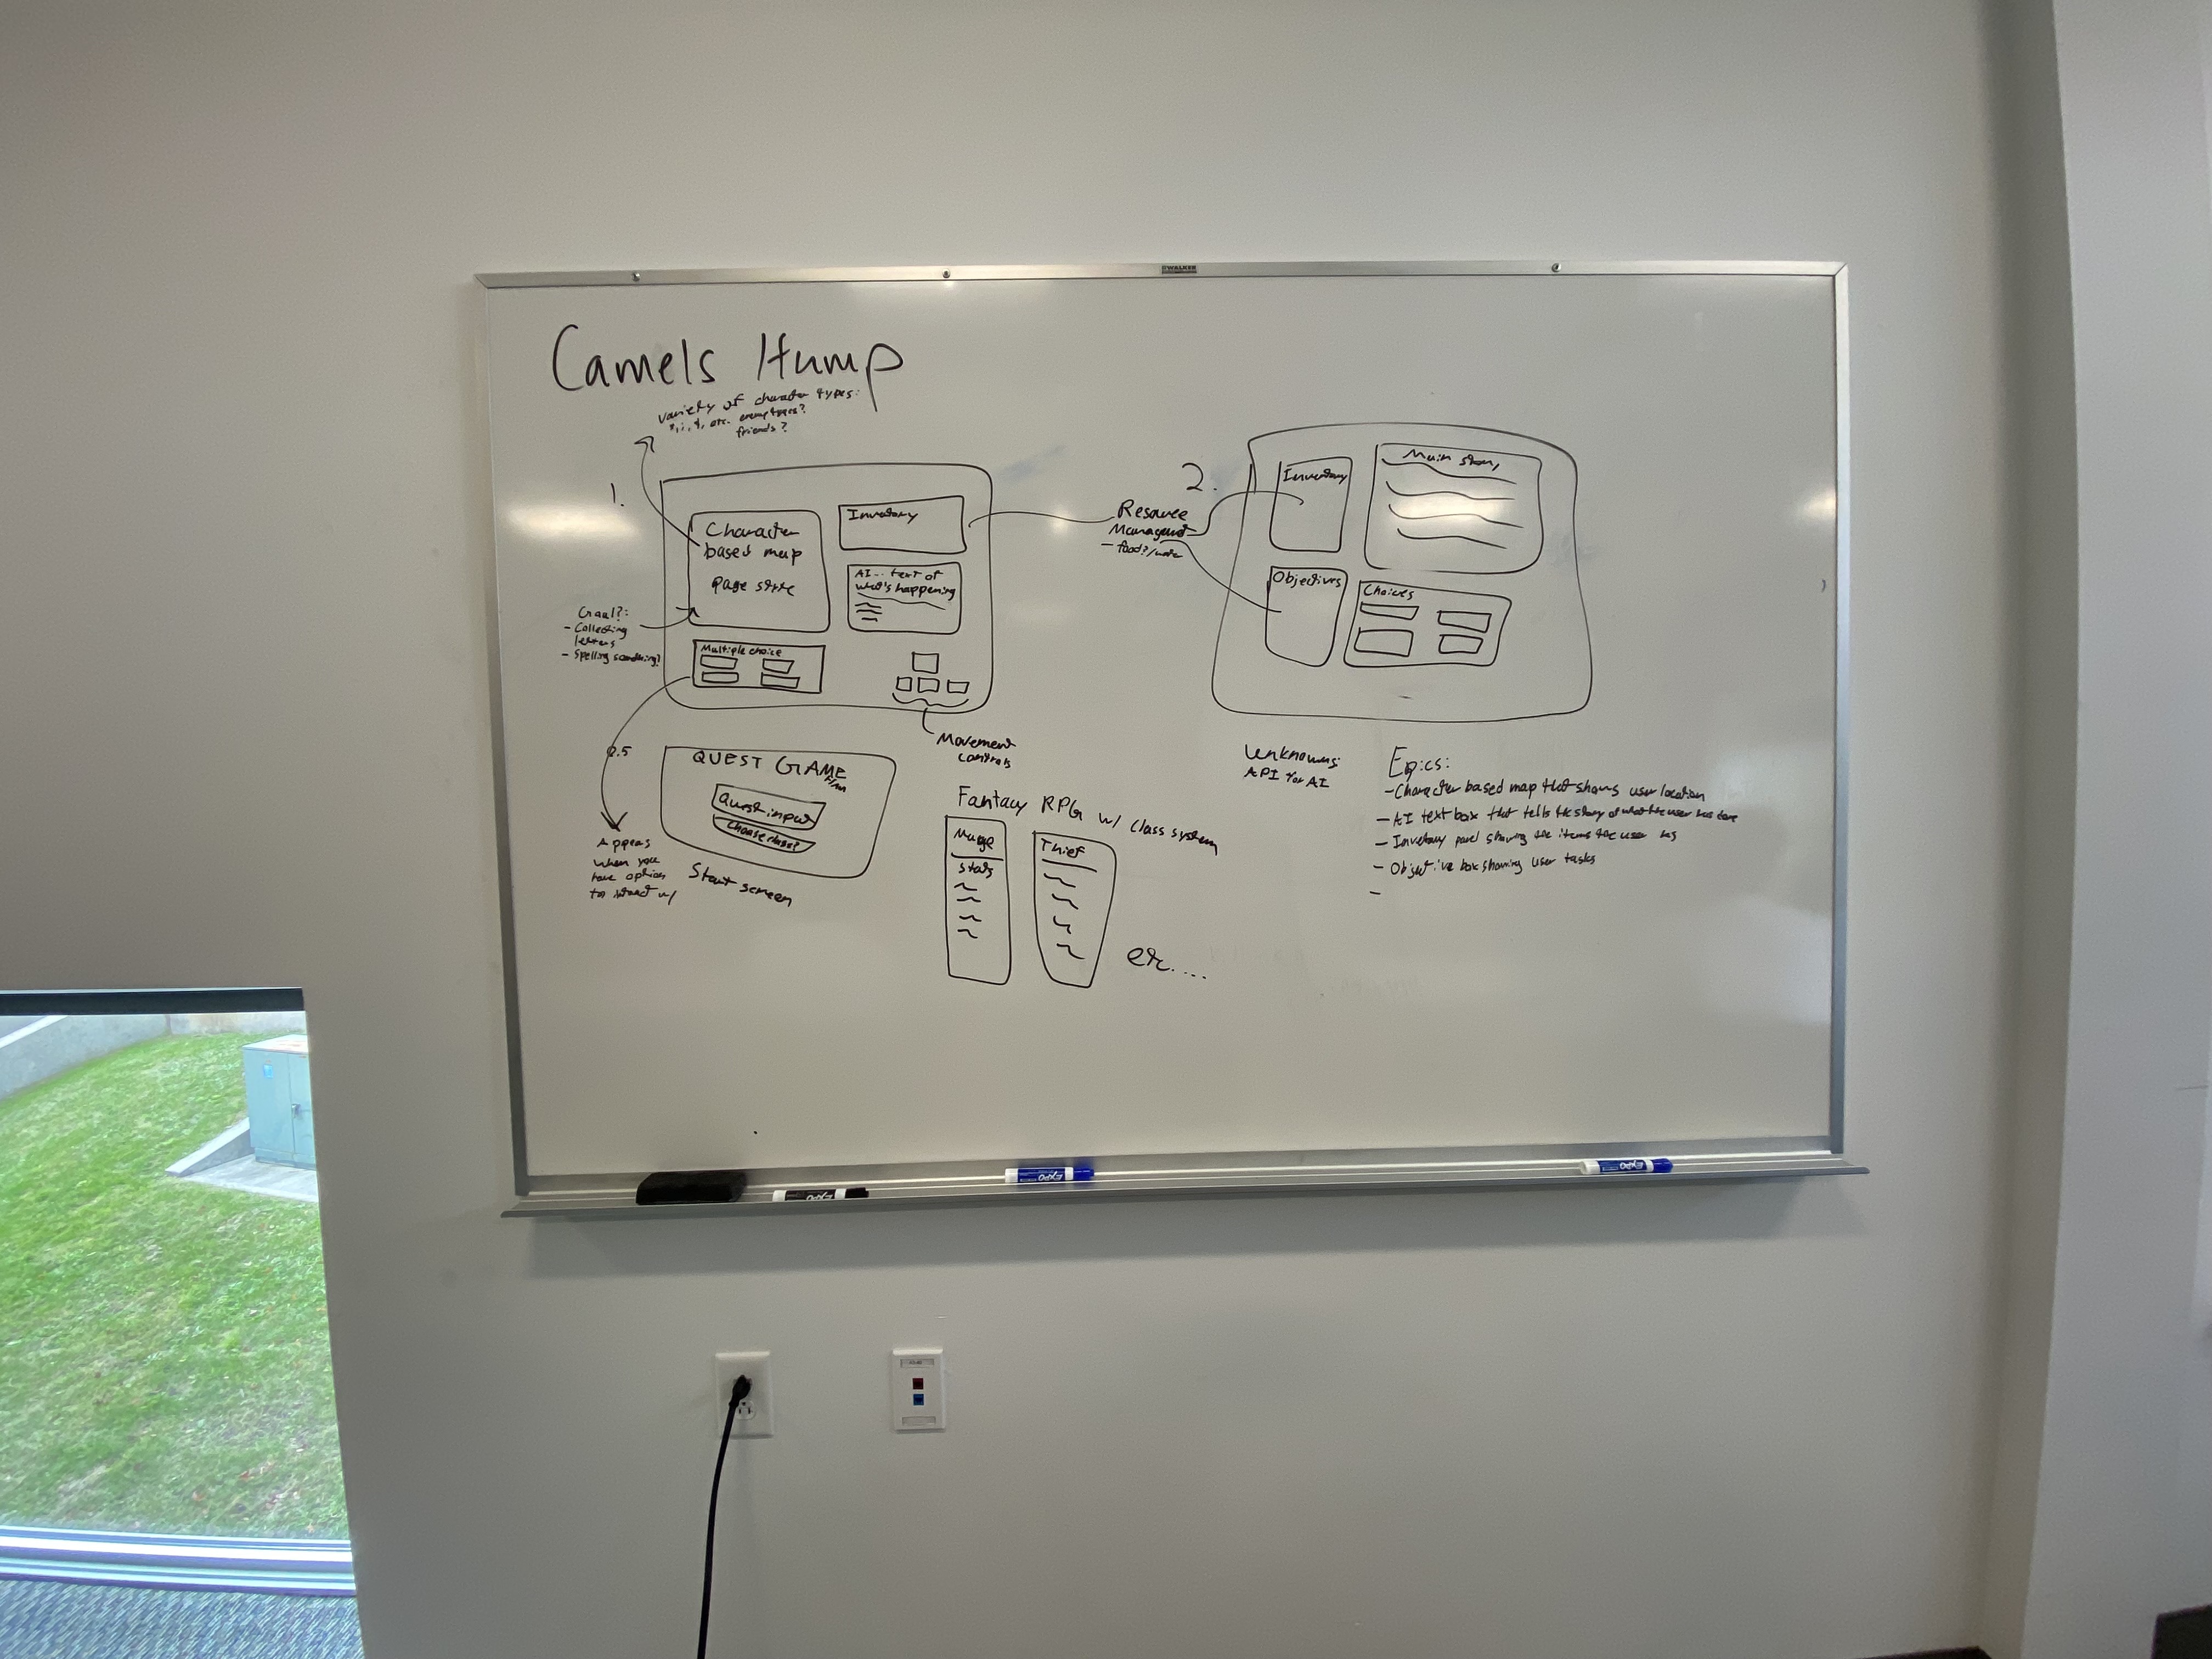 WALKER
Camels Hump
variety of character types:
etc.
friends?
1.
Character
based map
page
Inventory
AI... text of
what's happening
Goal?:
- Collecting
letters
- Spelling something?
Multiple choice
Movement
controls
Resource
- food?/
2.
Inventory
Main story
Objectives
Choices
0.5
QUEST GAME
Quest input
Choose class?
Start screen
Appears
when you
have option
to w/
Fantasy RPG w/ class system
Mage
Stats
Thief
Unknowns:
API for AI
Epics:
- Character based map that shows user location
- AI text box that tells the story of what the user has done
- Inventory panel showing the items the user has
- Objective box showing user tasks
-
EXPO
EXPO
EXPO